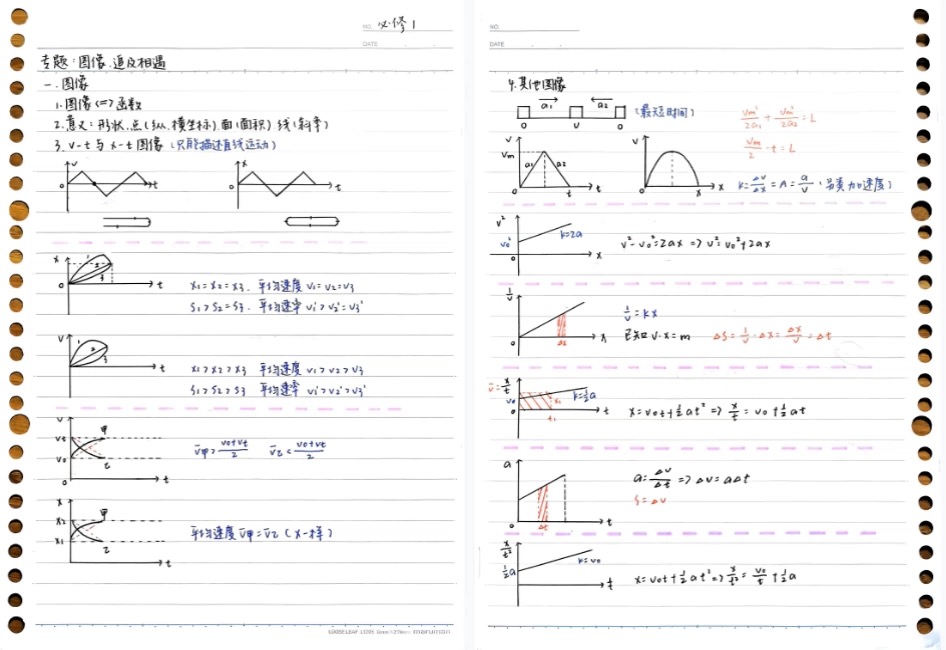 NO. 必修1
DATE
专题:图像.追及相遇
一.图像
1.图像⟺函数
2.意义:形状.点(纵.横坐标).面(面积) 线(斜率)
3. v-t 与 x-t 图像 (只能描述直线运动)
v
o
t
x
o
t
x
1
2
3
o
t
x1=x2=x3. 平均速度 v1=v2=v3
S1>S2=S3. 平均速率 v1'>v2'=v3'
v
1
2
3
o
t
x1>x2>x3 平均速度 v1>v2>v3
S1>S2>S3 平均速率 v1'>v2'>v3'
v
甲
vt
v0
乙
t
v̄甲>(v0+vt)/2 v̄乙<(v0+vt)/2
x
甲
x2
x1
乙
t
平均速度 v̄甲=v̄乙 (x一样)
LOOSE LEAF maruman
NO.
DATE
4.其他图像
a1 a2 (最短时间)
o v o
vm²/2a1 + vm²/2a2 = L
vm/2 · t = L
v
vm
a1
a2
o
t
v
o
x
k=Δv/Δx=A=a/v (另类加速度)
v²
v0²
k=2a
o
x
v²-v0²=2ax ⇒ v²=v0²+2ax
1/v
o
Δx
x
1/v=kx
已知 v·x=m ΔS=1/v·Δx=Δx/v=Δt
v̄=x/t
v0
k=½a
x1
o
t1
t
x=v0t+½at² ⇒ x/t=v0+½at
a
o
Δt
t
a=Δv/Δt ⇒ Δv=aΔt
S=Δv
x/t²
½a
k=v0
o
t
x=v0t+½at² ⇒ x/t²=v0/t+½a